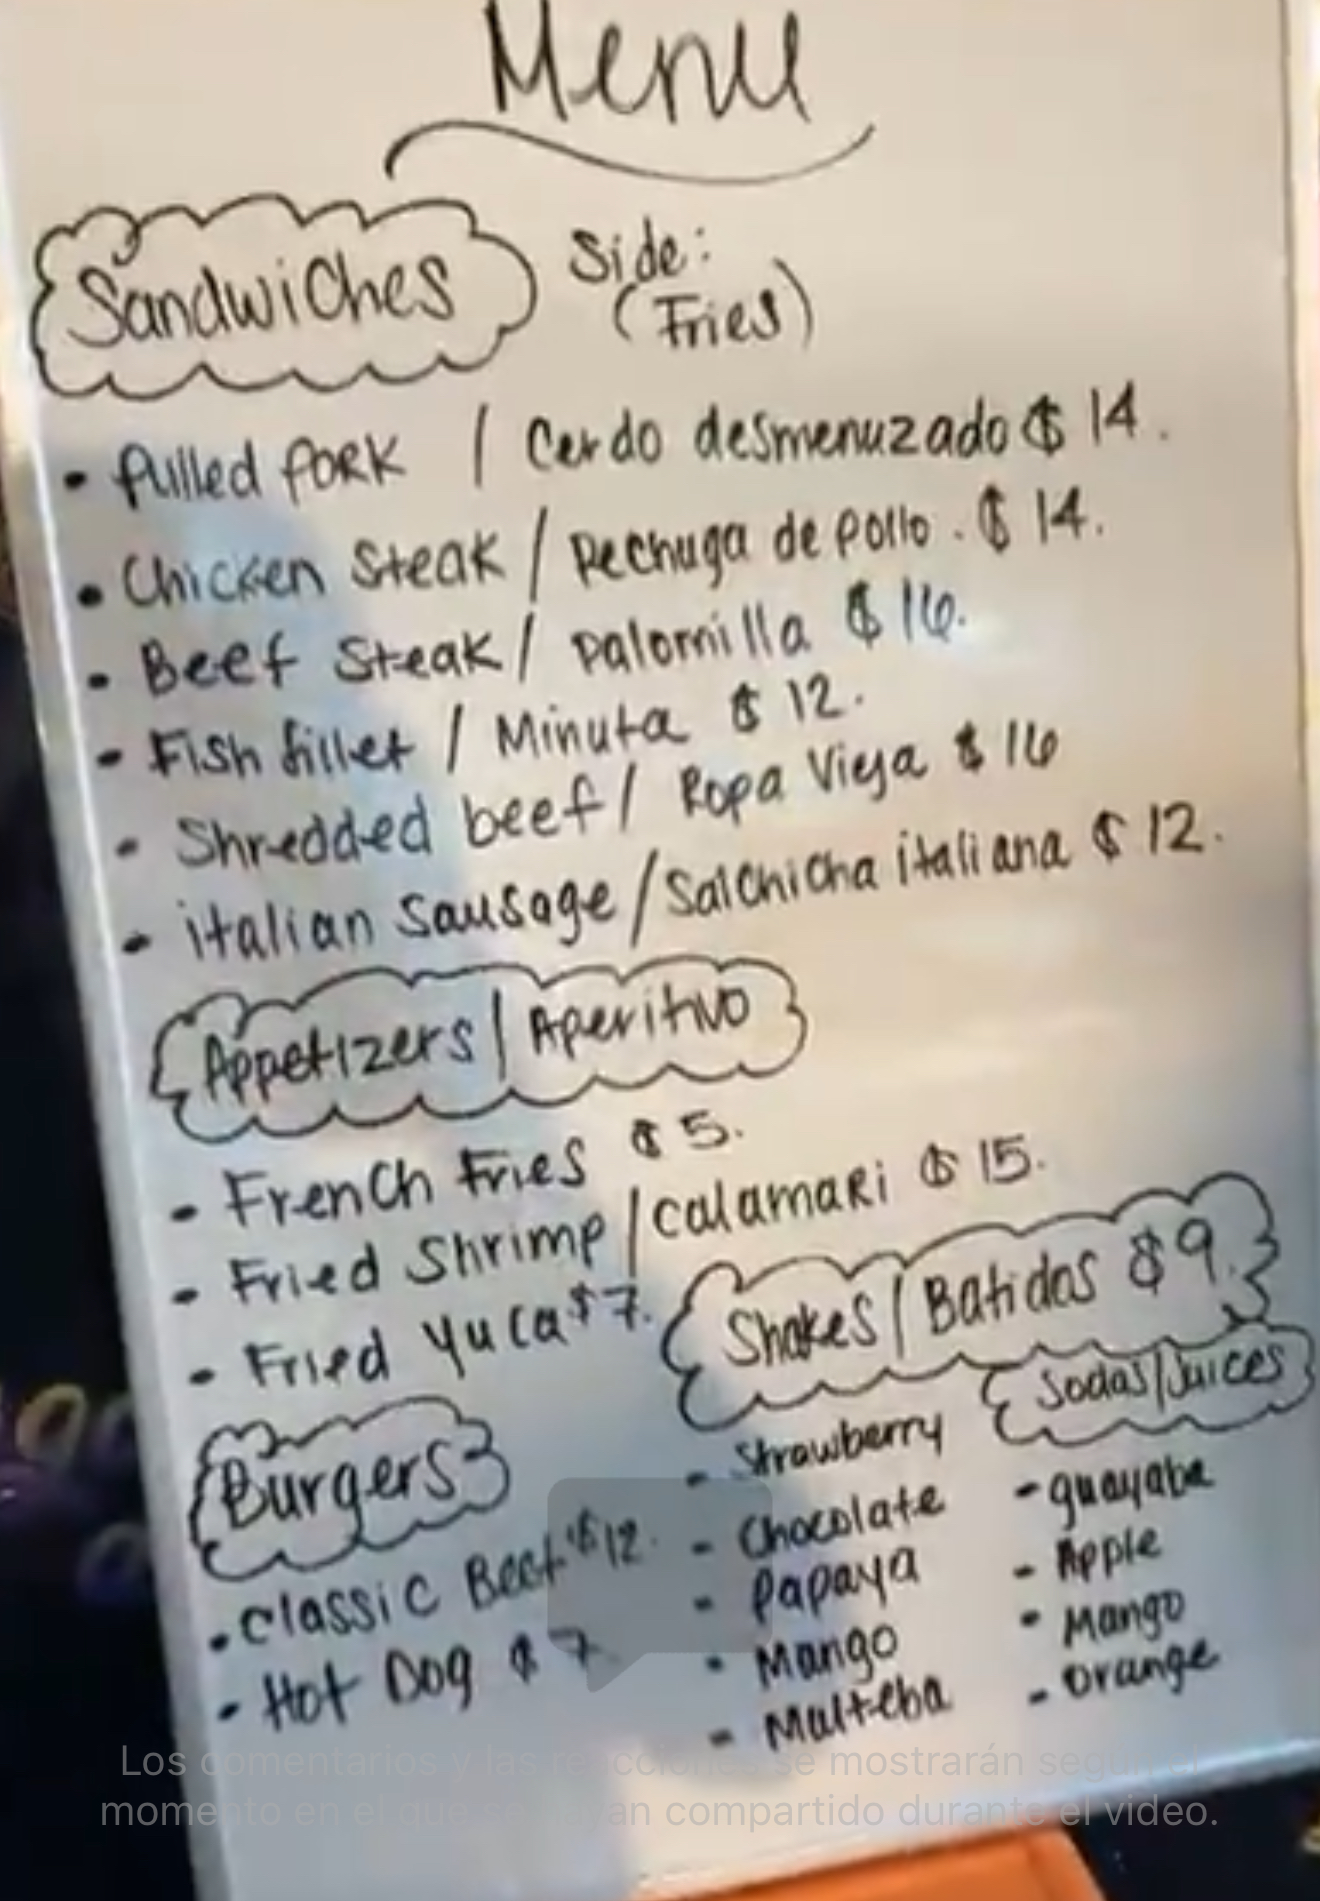 Menu
Sandwiches
Side:
(Fries)
- Pulled PORK / Cerdo desmenuzado $ 14.
- Chicken Steak / Pechuga de pollo. $ 14.
- Beef Steak / Palomilla $ 16.
- Fish fillet / Minuta $ 12.
- Shredded beef / Ropa Vieja $ 16
- italian Sausage / Salchicha italiana $ 12.
Appetizers | Aperitivo
- French Fries $ 5.
- Fried Shrimp / calamari $ 15.
- Fried Yuca $ 7.
Burgers
- Classic Beef $ 12.
- Hot Dog $ 7
Shakes / Batidos $ 9.
- Strawberry
- Chocolate
- Papaya
- Mango
- Malteba
Sodas/Juices
- guayaba
- Apple
- Mango
- Orange
Los comentarios y las reacciones se mostrarán según el
momento en el que se hayan compartido durante el video.